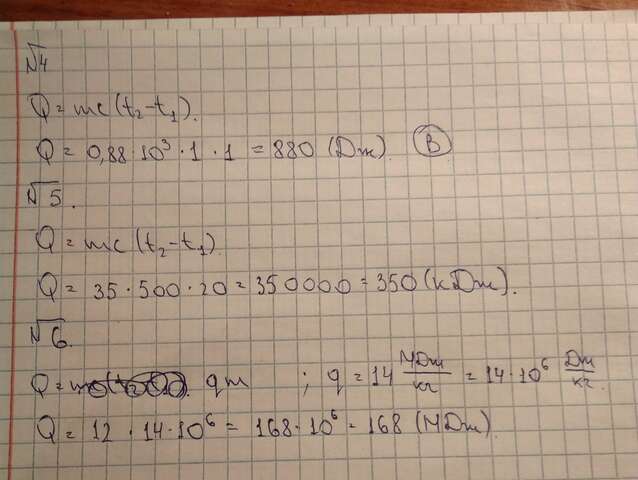 №4
Q = mc(t₂-t₁).
Q = 0,88·10³·1·1 = 880 (Дж). В
№5.
Q = mc(t₂-t₁).
Q = 35·500·20 = 350000 = 350 (кДж).
№6.
Q = qm ; q = 14 МДж/кг = 14·10⁶ Дж/кг.
Q = 12·14·10⁶ = 168·10⁶ = 168 (МДж).